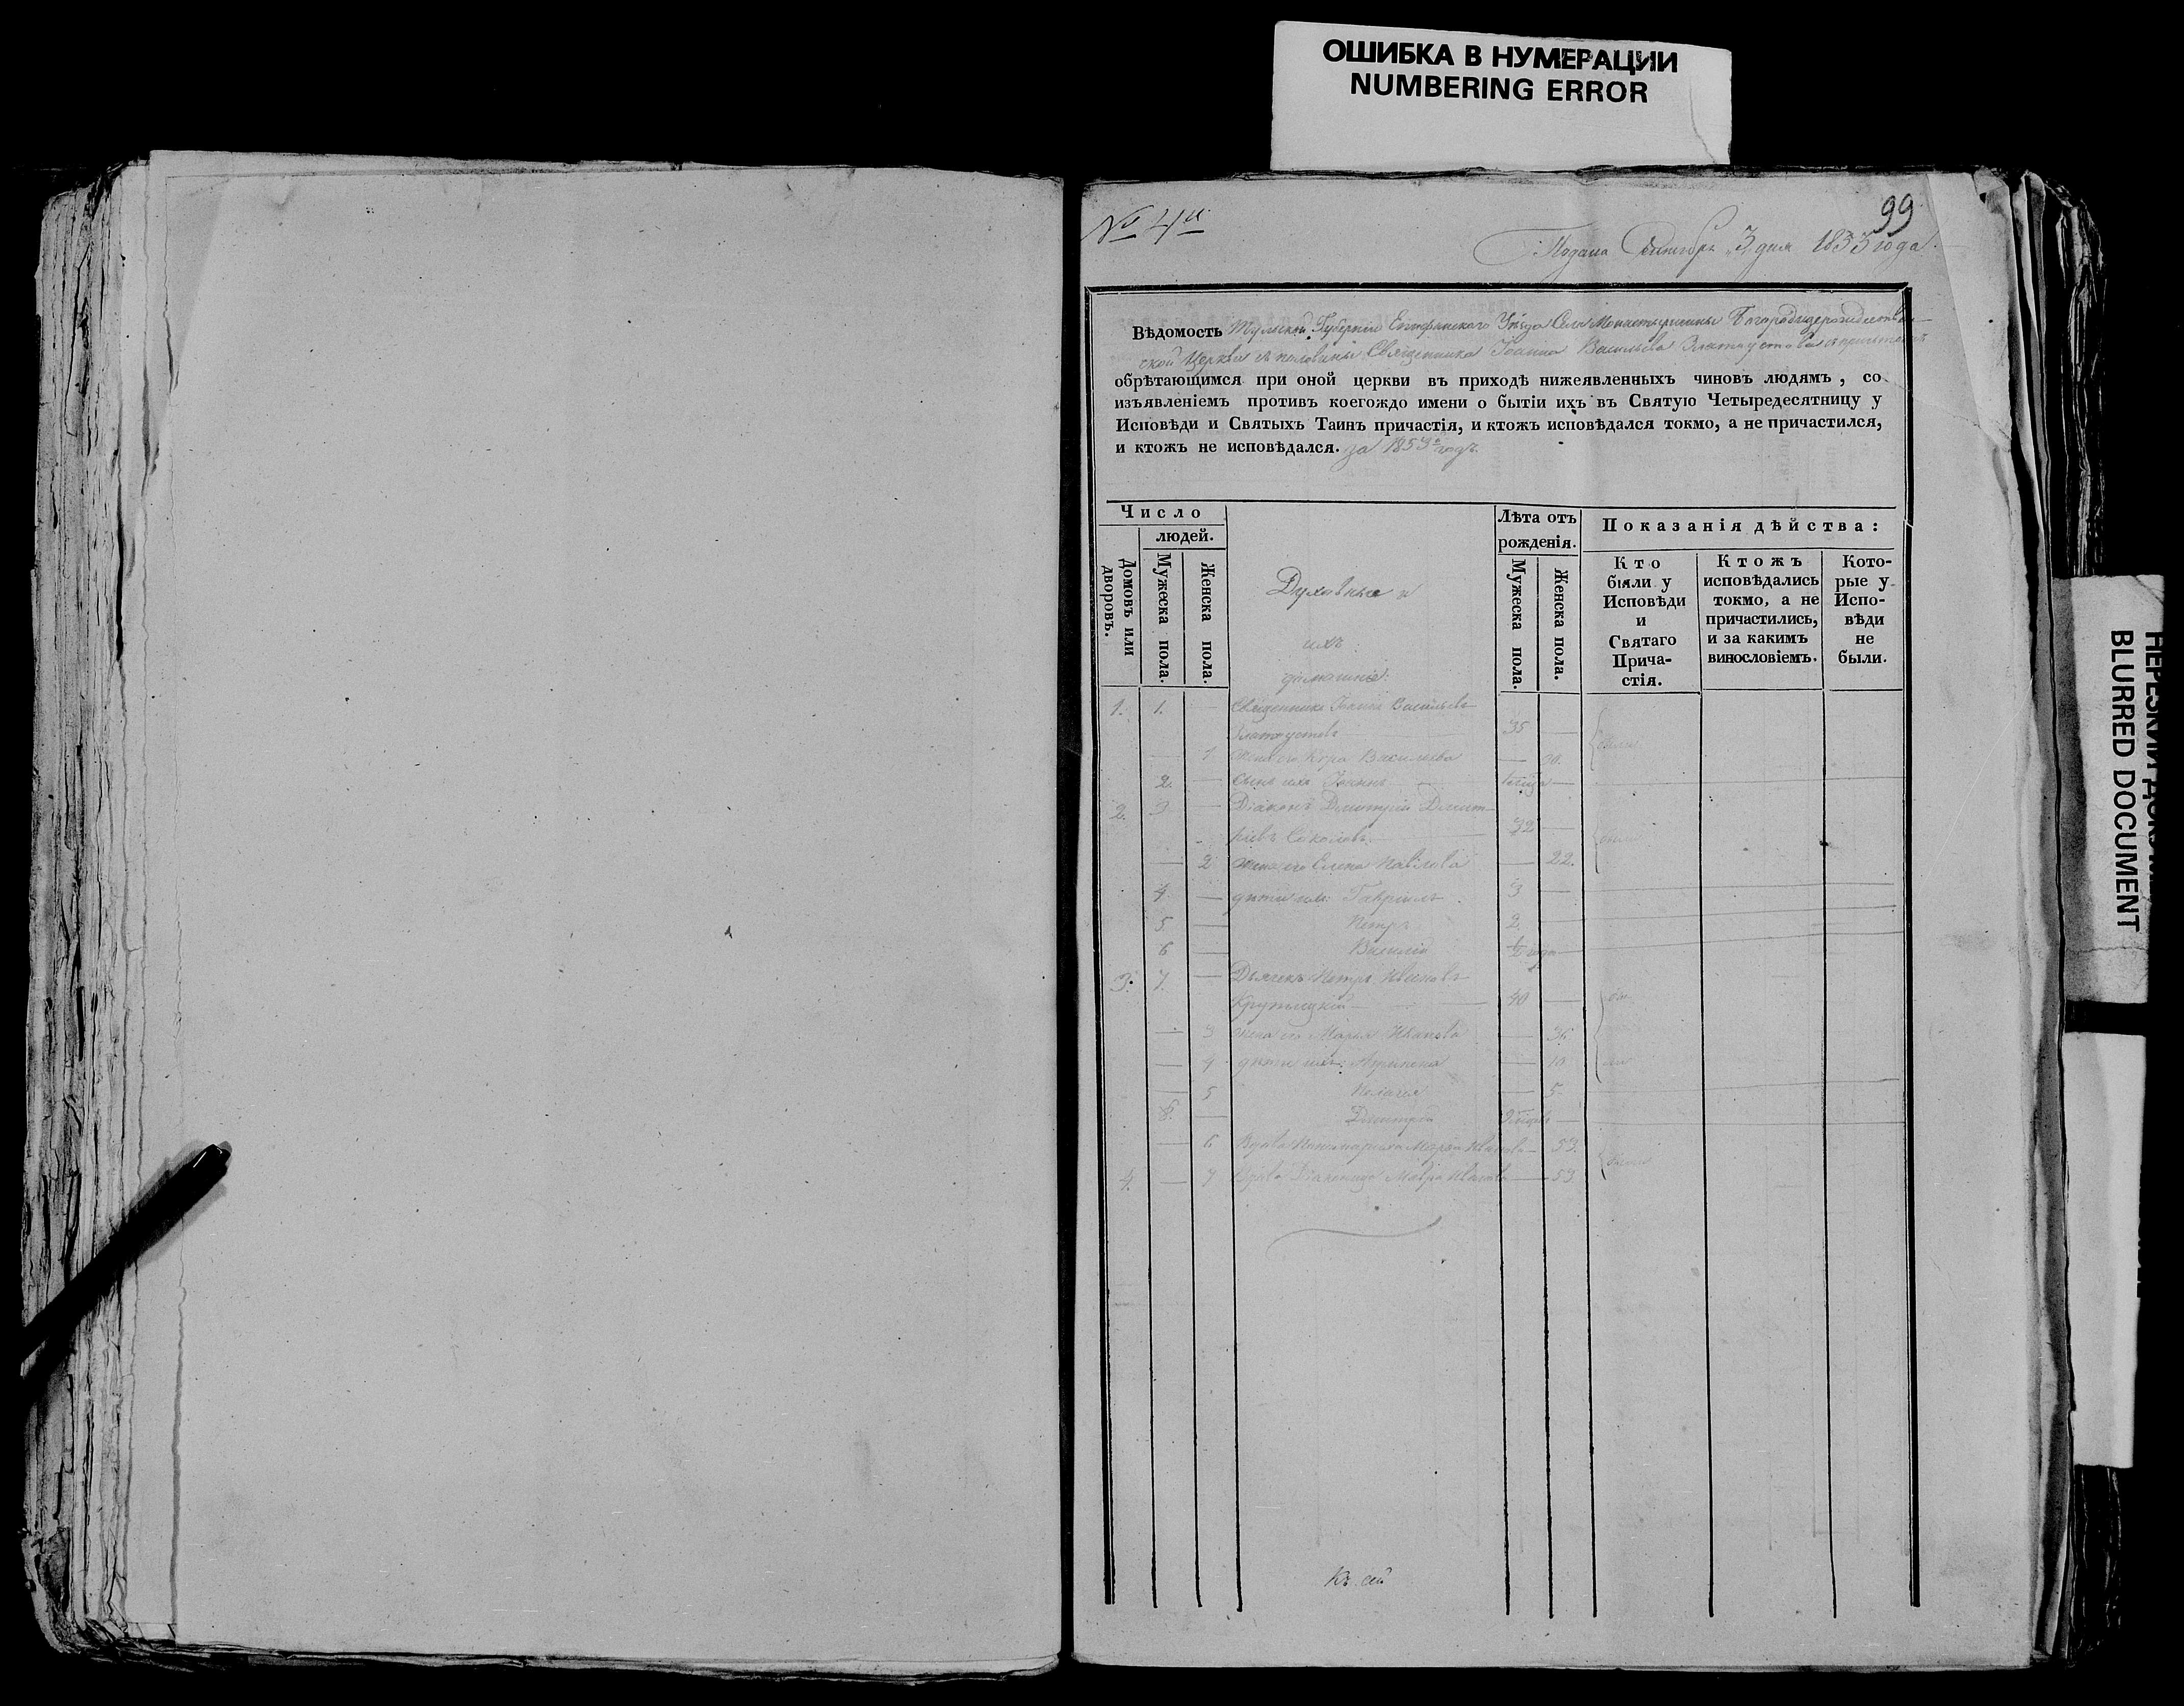 ОШИБКА В НУМЕРАЦИИ
NUMBERING ERROR
99
№ 4й
Подана Октября 3 дня 1853 года.
Вѣдомость Тульской Губерніи Епифанскаго Уѣзда Села Монастырщины Богородицерождествен-
ской Церкви половины Священника Іоанна Васильева Златоустова съ причтомъ
обрѣтающимся при оной церкви въ приходѣ нижеявленныхъ чиновъ людямъ, со
изъявленіемъ противъ коегождо имени о бытіи ихъ въ Святую Четыредесятницу у
Исповѣди и Святыхъ Таинъ причастія, и ктожъ исповѣдался токмо, а не причастился,
и ктожъ не исповѣдался. за 1853й годъ.
Число
людей.
Домовъ или дворовъ.
Мужеска пола.
Женска пола.
Духовные и
ихъ
домашніе:
Лѣта отъ
рожденія.
Мужеска пола.
Женска пола.
Показанія дѣйства:
Кто
были у
Исповѣди
и
Святаго
Прича-
стія.
Ктожъ
исповѣдались
токмо, а не
причастились,
и за какимъ
винословіемъ.
Кото-
рые у
Испо-
вѣди
не
были.
1. 1. — Священникъ Іоаннъ Васильевъ
Златоустовъ 35 —
— 1 Жена его Васильева — 30. были
2. — Сынъ ихъ Іоаннъ
2. 3 — Діаконъ Димитрій Димит-
ріевъ Соколовъ 32 — были
— 2 Жена его Елена Павлова — 22.
4. — дѣти ихъ: Гавріилъ 3 —
5 — Петръ 2.
6 — Василій ½ года
3. 7. — Дьячекъ Петръ Ивановъ
Крутицкій 40 —
— 3 Жена его Марья Иванова — 36
— 4 дѣти ихъ: — 10
— 5 Пелагея — 5.
8. — Димитрій
— 6 Вдова Пономариха Марья Иванова — 53.
4. — 7 Вдова Діаконица Мавра Иванова — 53 были
Къ сей
НЕРЕЗКИЙ
BLURRED DOCUMENT